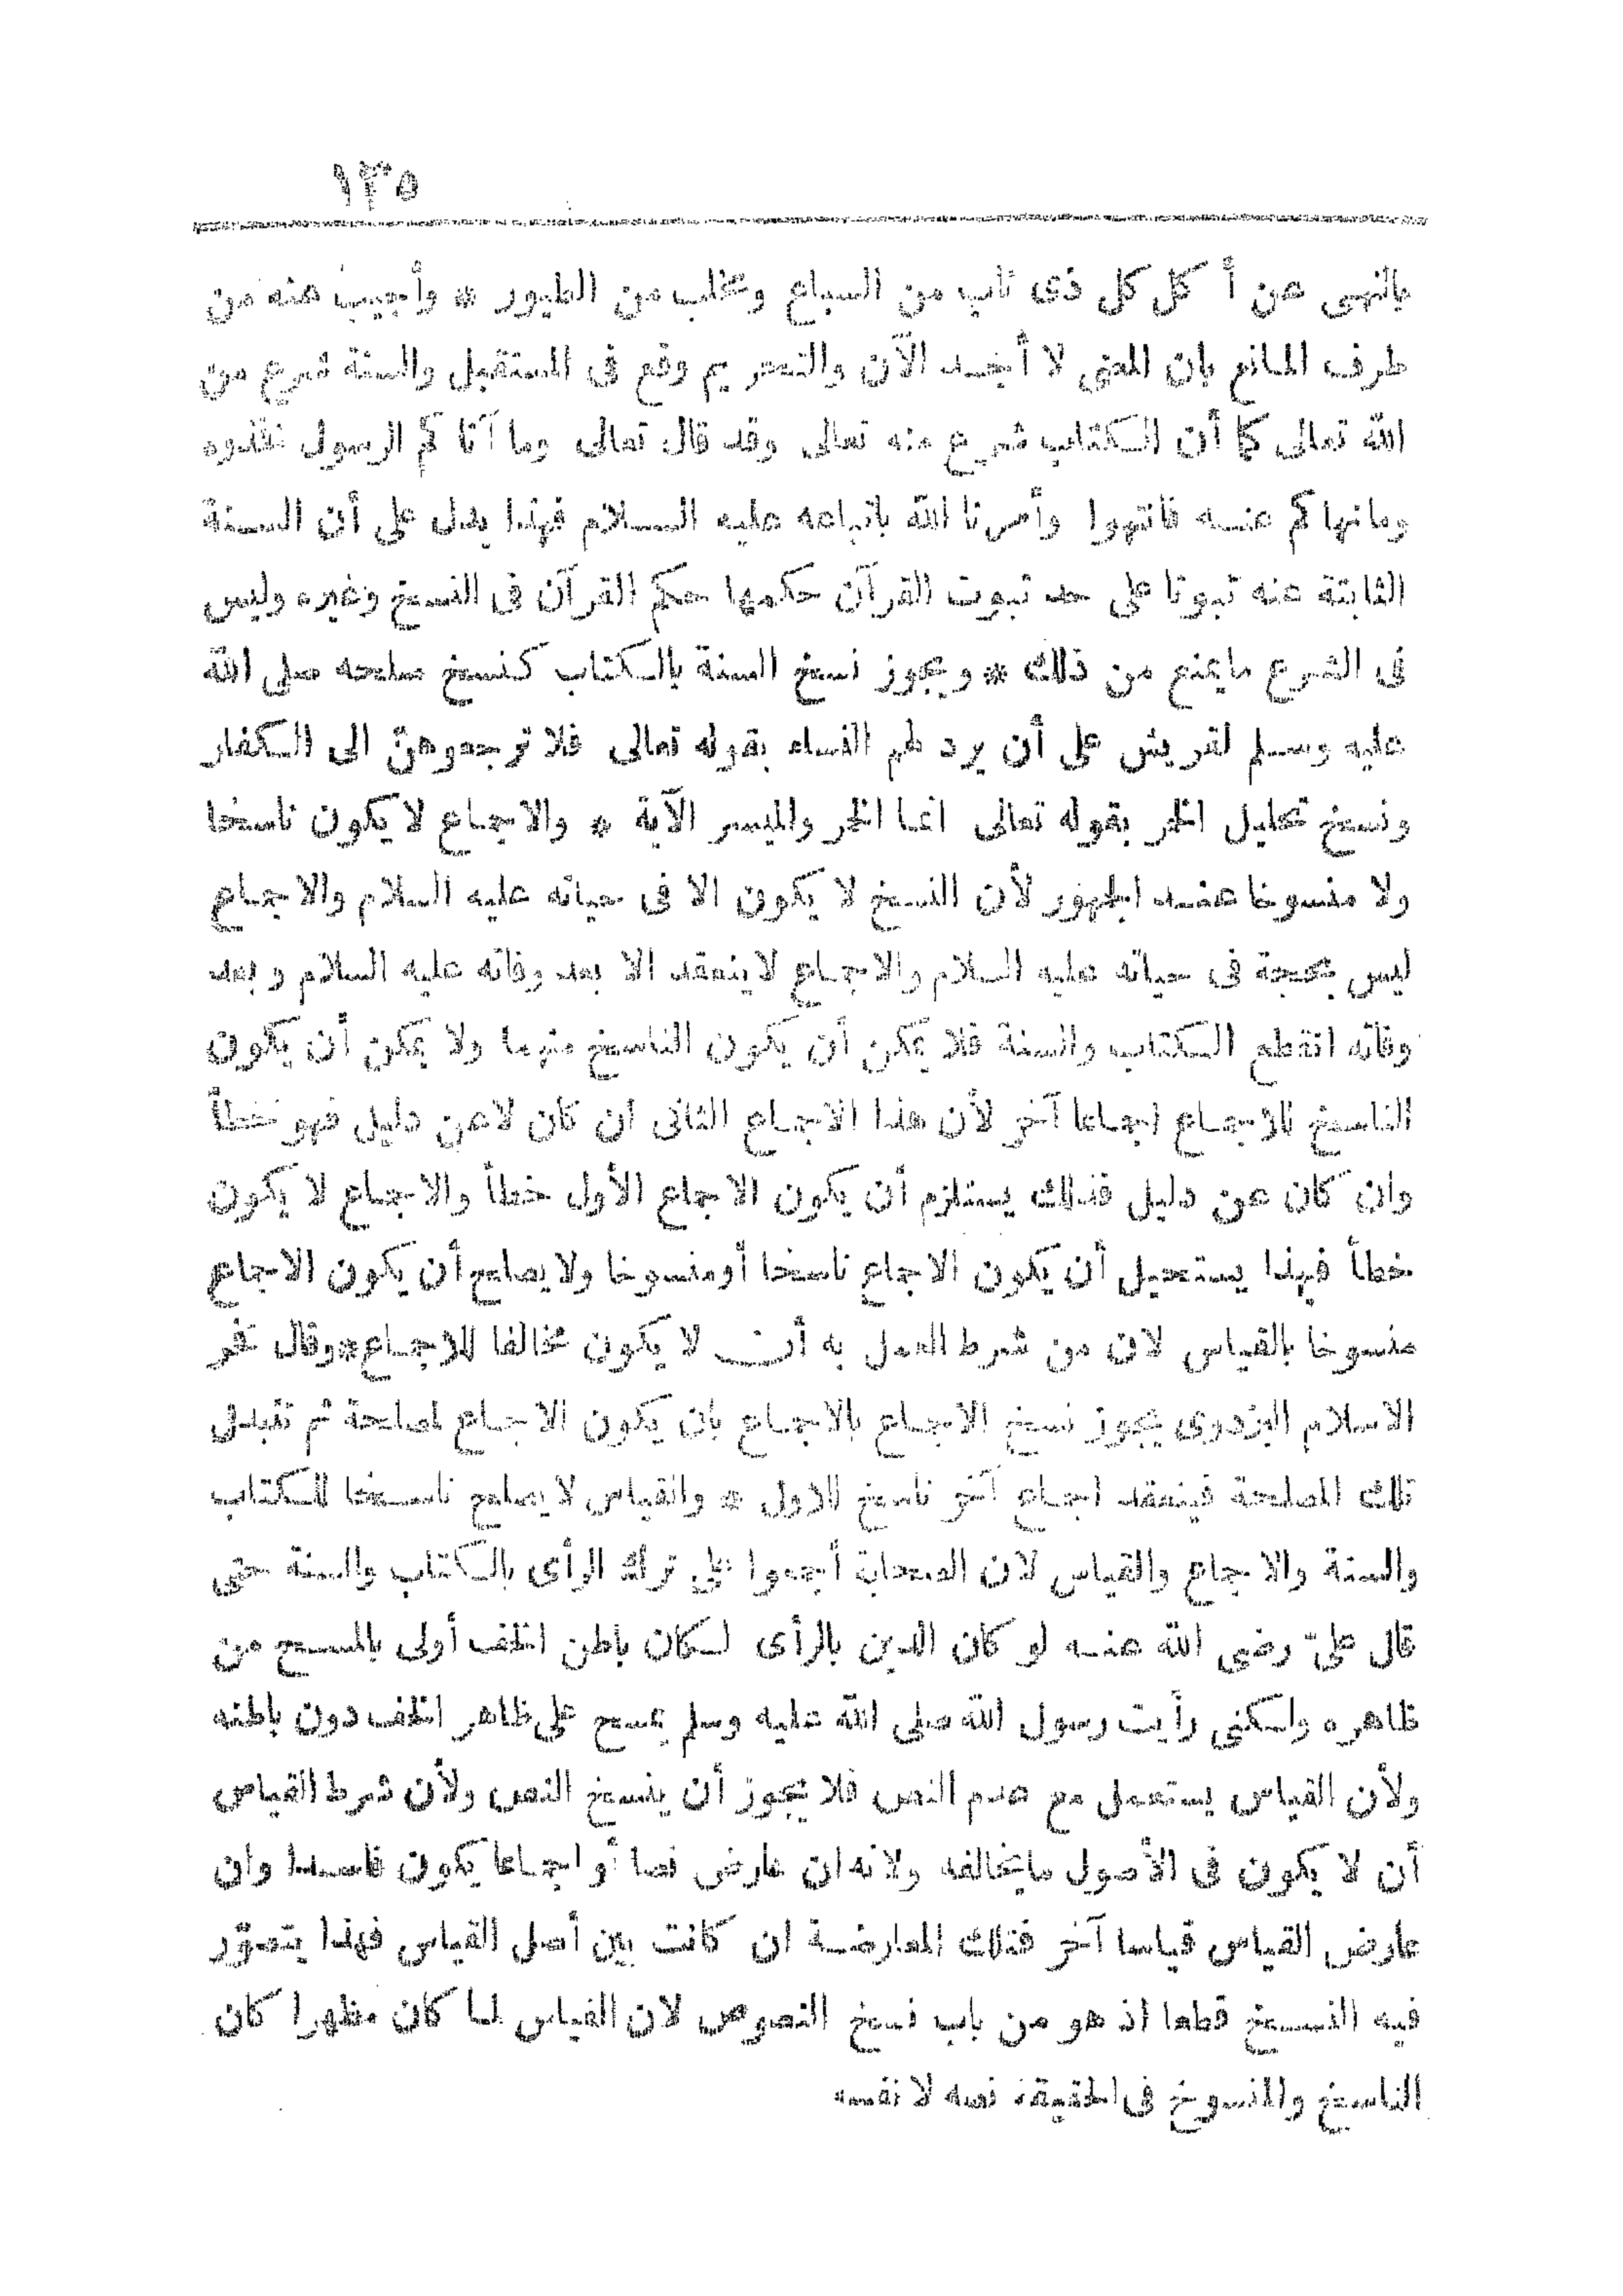 ١٣٥
بالنهى عن أكل كل ذى ناب من السباع ومخلب من الطيور * وأجيب عنه من
طرف المانع بان المعنى لا أجد الآن والتحريم وقع فى المستقبل والسنة شرع من
الله تعالى كما أن الكتاب شرع منه تعالى وقد قال تعالى وما آتاكم الرسول فخذوه
ومانهاكم عنه فانتهوا وأمرنا الله باتباعه عليه السلام فهذا يدل على أن السنة
الثابتة عنه ثبوتا على حد ثبوت القرآن حكمها حكم القرآن فى النسخ وغيره وليس
فى الشرع مايمنع من ذلك * ويجوز نسخ السنة بالكتاب كنسخ صلحه صلى الله
عليه وسلم لقريش على أن يرد لهم النساء بقوله تعالى فلا ترجعوهنّ الى الكفار
ونسخ تحليل الخمر بقوله تعالى انما الخمر والميسر الآية * والاجماع لا يكون ناسخا
ولا منسوخا عند الجمهور لأن النسخ لا يكون الا فى حياته عليه السلام والاجماع
ليس بحجة فى حياته عليه السلام والاجماع لاينعقد الا بعد وفاته عليه السلام وبعد
وفاته انقطع الكتاب والسنة فلا يمكن أن يكون الناسخ منهما ولا يمكن أن يكون
الناسخ للاجماع اجماعا آخر لأن هذا الاجماع الثانى ان كان لاعن دليل فهو خطأ
وان كان عن دليل فذلك يستلزم أن يكون الاجماع الأول خطأ والاجماع لا يكون
خطأ فبهذا يستحيل أن يكون الاجماع ناسخا أومنسوخا ولا يصلح أن يكون الاجماع
منسوخا بالقياس لان من شرط العمل به أن لا يكون مخالفا للاجماع*وقال فخر
الاسلام البزدوى يجوز نسخ الاجماع بالاجماع بان يكون الاجماع لمصلحة ثم تتبدل
تلك المصلحة فينعقد اجماع آخر ناسخ للاول * والقياس لا يصلح ناسخا للكتاب
والسنة والاجماع والقياس لان الصحابة أجمعوا على ترك الرأى بالكتاب والسنة حتى
قال علىّ رضى الله عنه لو كان الدين بالرأى لكان باطن الخف أولى بالمسح من
ظاهره ولكنى رأيت رسول الله صلى الله عليه وسلم يمسح على ظاهر الخف دون باطنه
ولأن القياس يستعمل مع عدم النص فلا يجوز أن ينسخ النص ولأن شرط القياس
أن لا يكون فى الأصول مايخالفه ولانه ان عارض نصا أو اجماعا يكون فاسدا وان
عارض القياس قياسا آخر فتلك المعارضة ان كانت بين أصل القياس فهذا يتصوّر
فيه النسخ قطعا اذ هو من باب نسخ النصوص لان القياس لما كان مظهرا كان
الناسخ والمنسوخ فى الحقيقة نصه لا نفسه